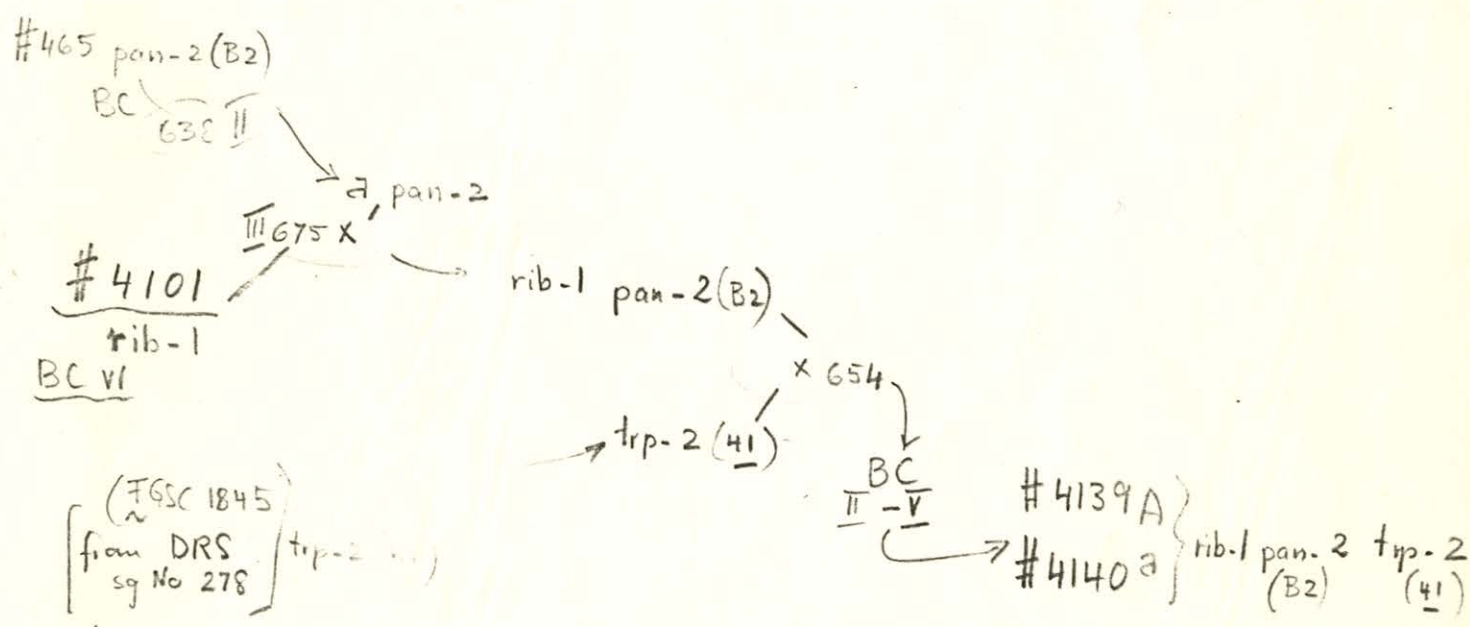 #465 pan-2 (B2)
BC 638 II
a, pan-2
III 675 x
#4101
rib-1
BC VI
rib-1 pan-2 (B2)
x 654
trp-2 (41)
BC
II - V
(FGSC 1845
from DRS
sg No 278
trp-2
#4139 A
#4140 a
rib-1 pan-2 trp-2
(B2) (41)